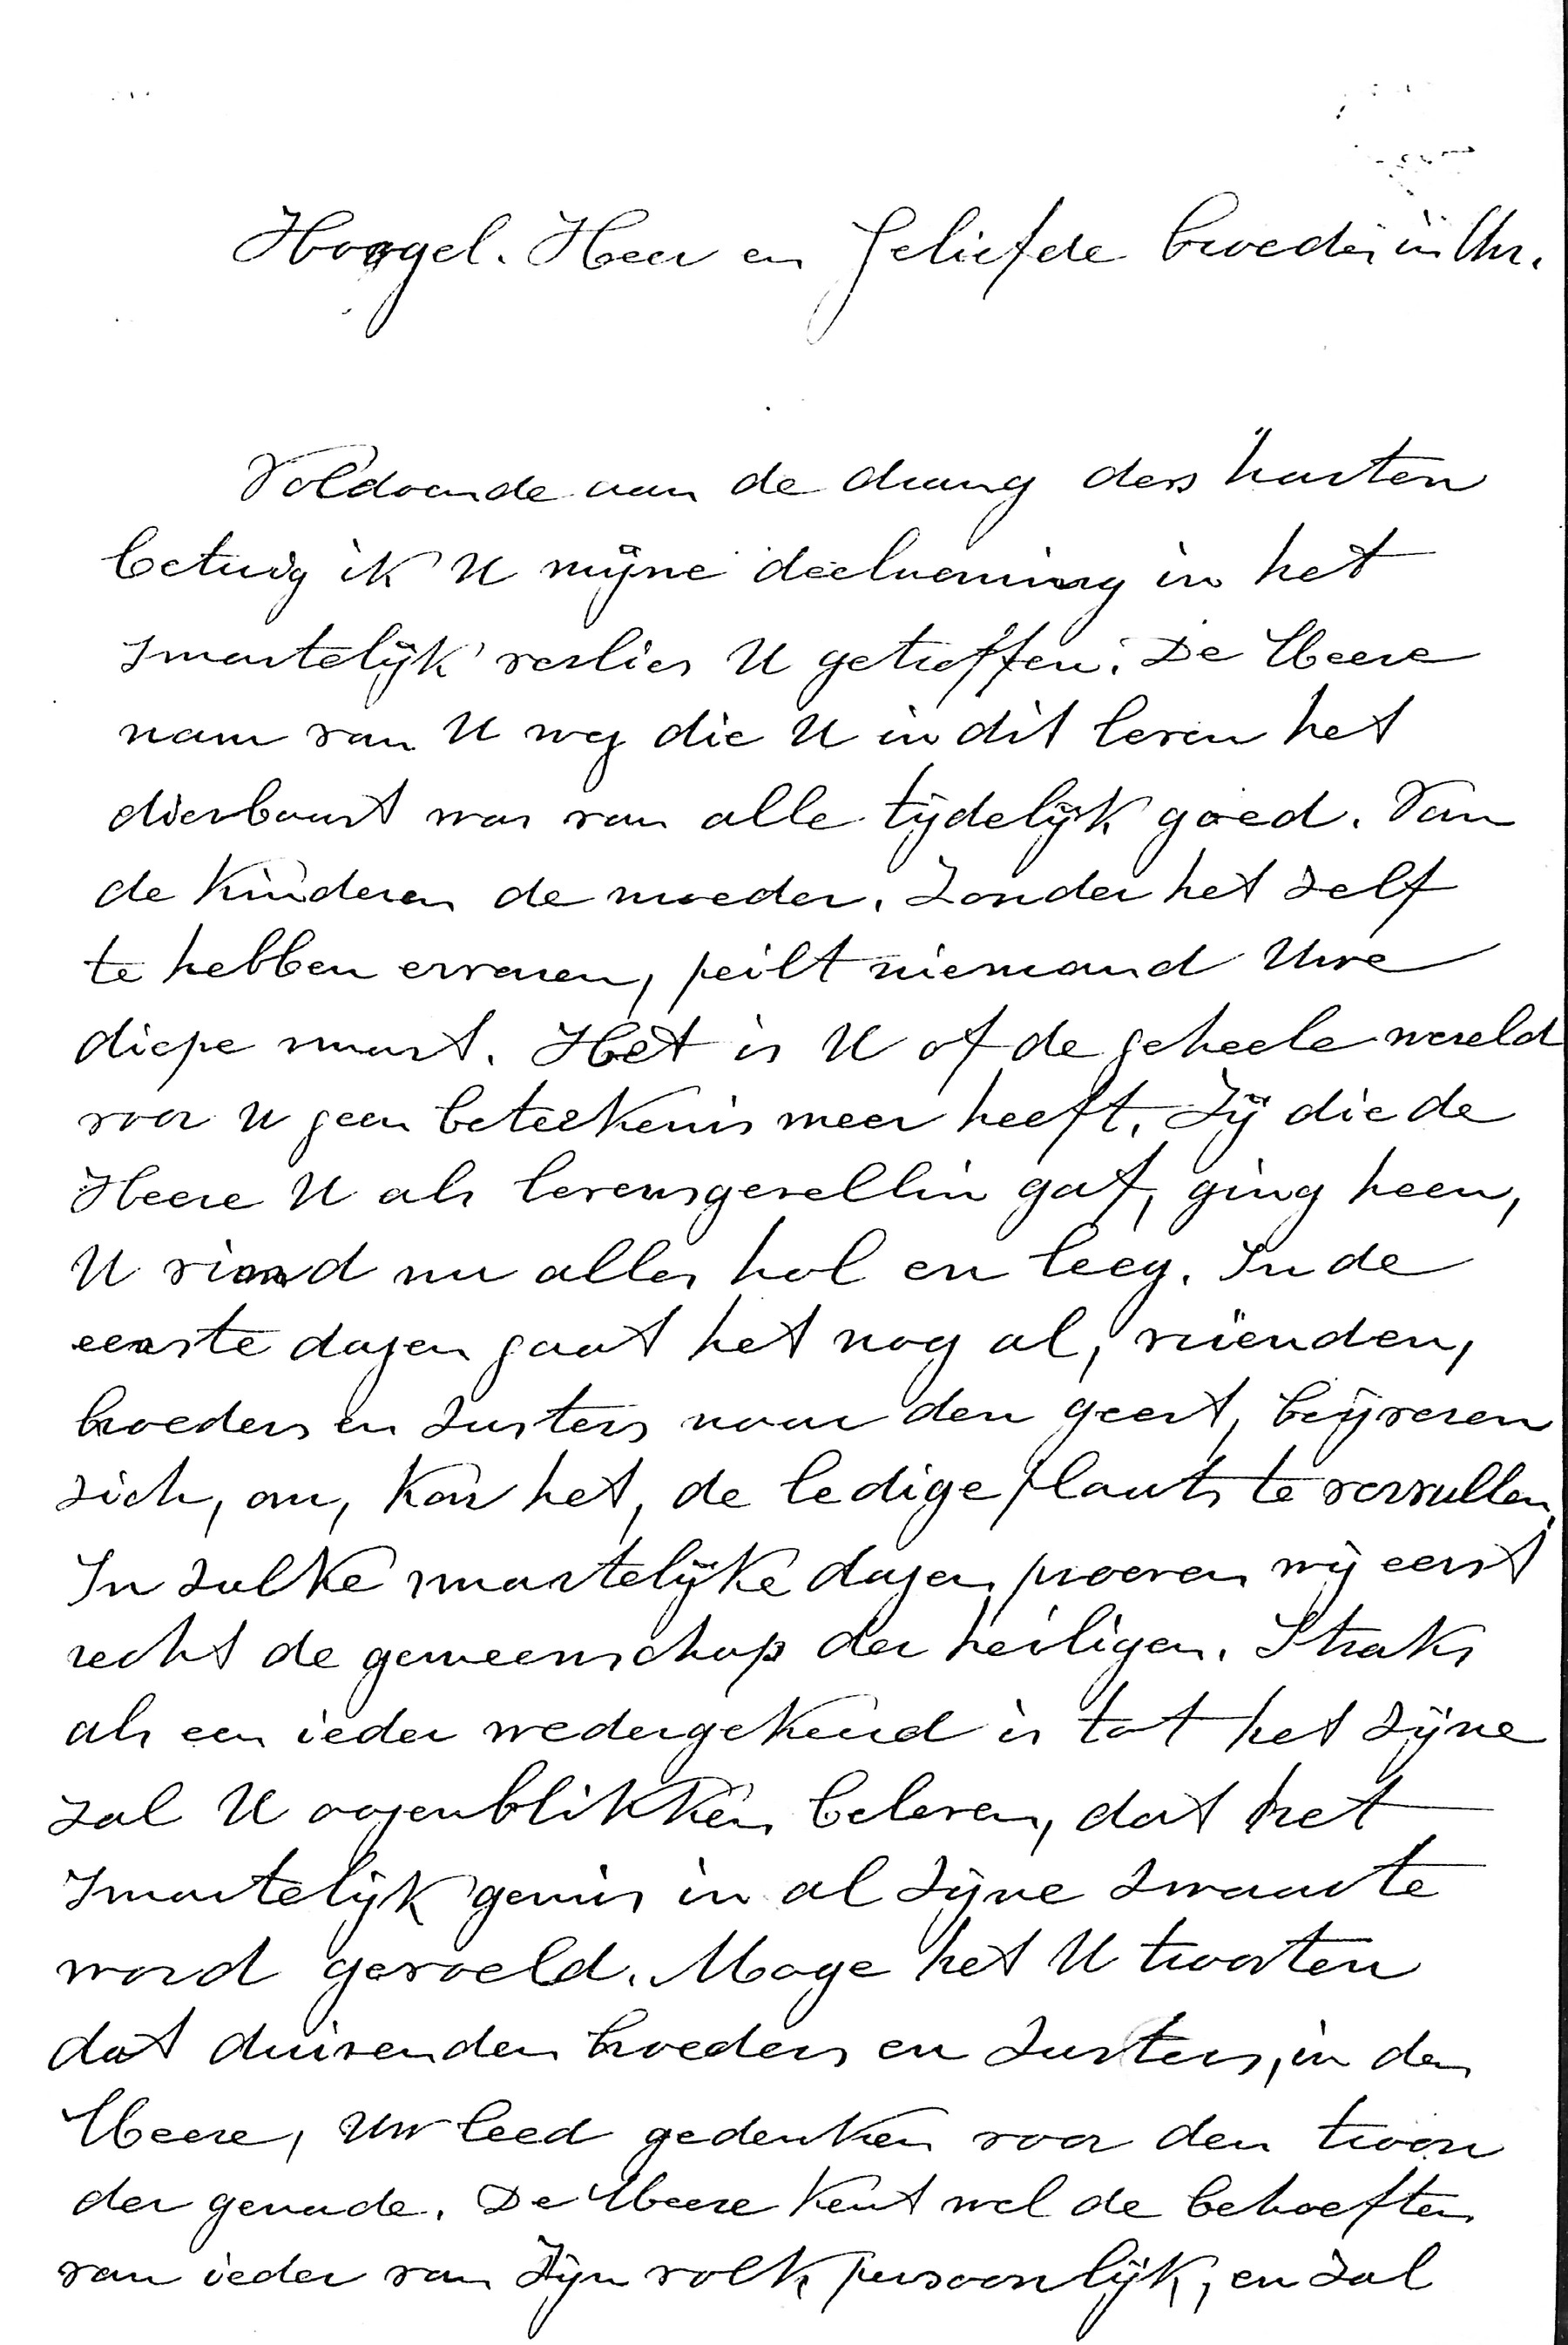 Hoogel. Heer en geliefde broeder in Chr.
Voldoende aan de drang des harten
betuig ik U mijne deelneming in het
smartelijk verlies U getroffen. De Heere
nam van U weg die U in dit leven het
dierbaarst was van alle tijdelijk goed. Van
de kinderen de moeder. Zonder het zelf
te hebben ervaren, peilt niemand Uwe
diepe smart. Het is U of de geheele wereld
voor U geen beteekenis meer heeft. Zij die de
Heere U als levensgezellin gaf, ging heen,
U vind nu alles hol en leeg. In de
eerste dagen gaat het nog al, vrienden,
broeders en zusters naar den geest, beijveren
zich, om, kon het, de ledige plaats te vervullen.
In zulke smartelijke dagen proeven wij eerst
recht de gemeenschap der heiligen. Straks
als een ieder wedergekeerd is tot het zijne
zal U oogenblikken beleven, dat het
smartelijk gemis in al zijne zwaarte
word gevoeld. Moge het U troosten
dat duizenden broeders en zusters, in den
Heere, Uw leed gedenken voor den troon
der genade. De Heere kent wel de behoeften
van ieder van Zijn volk persoonlijk, en zal